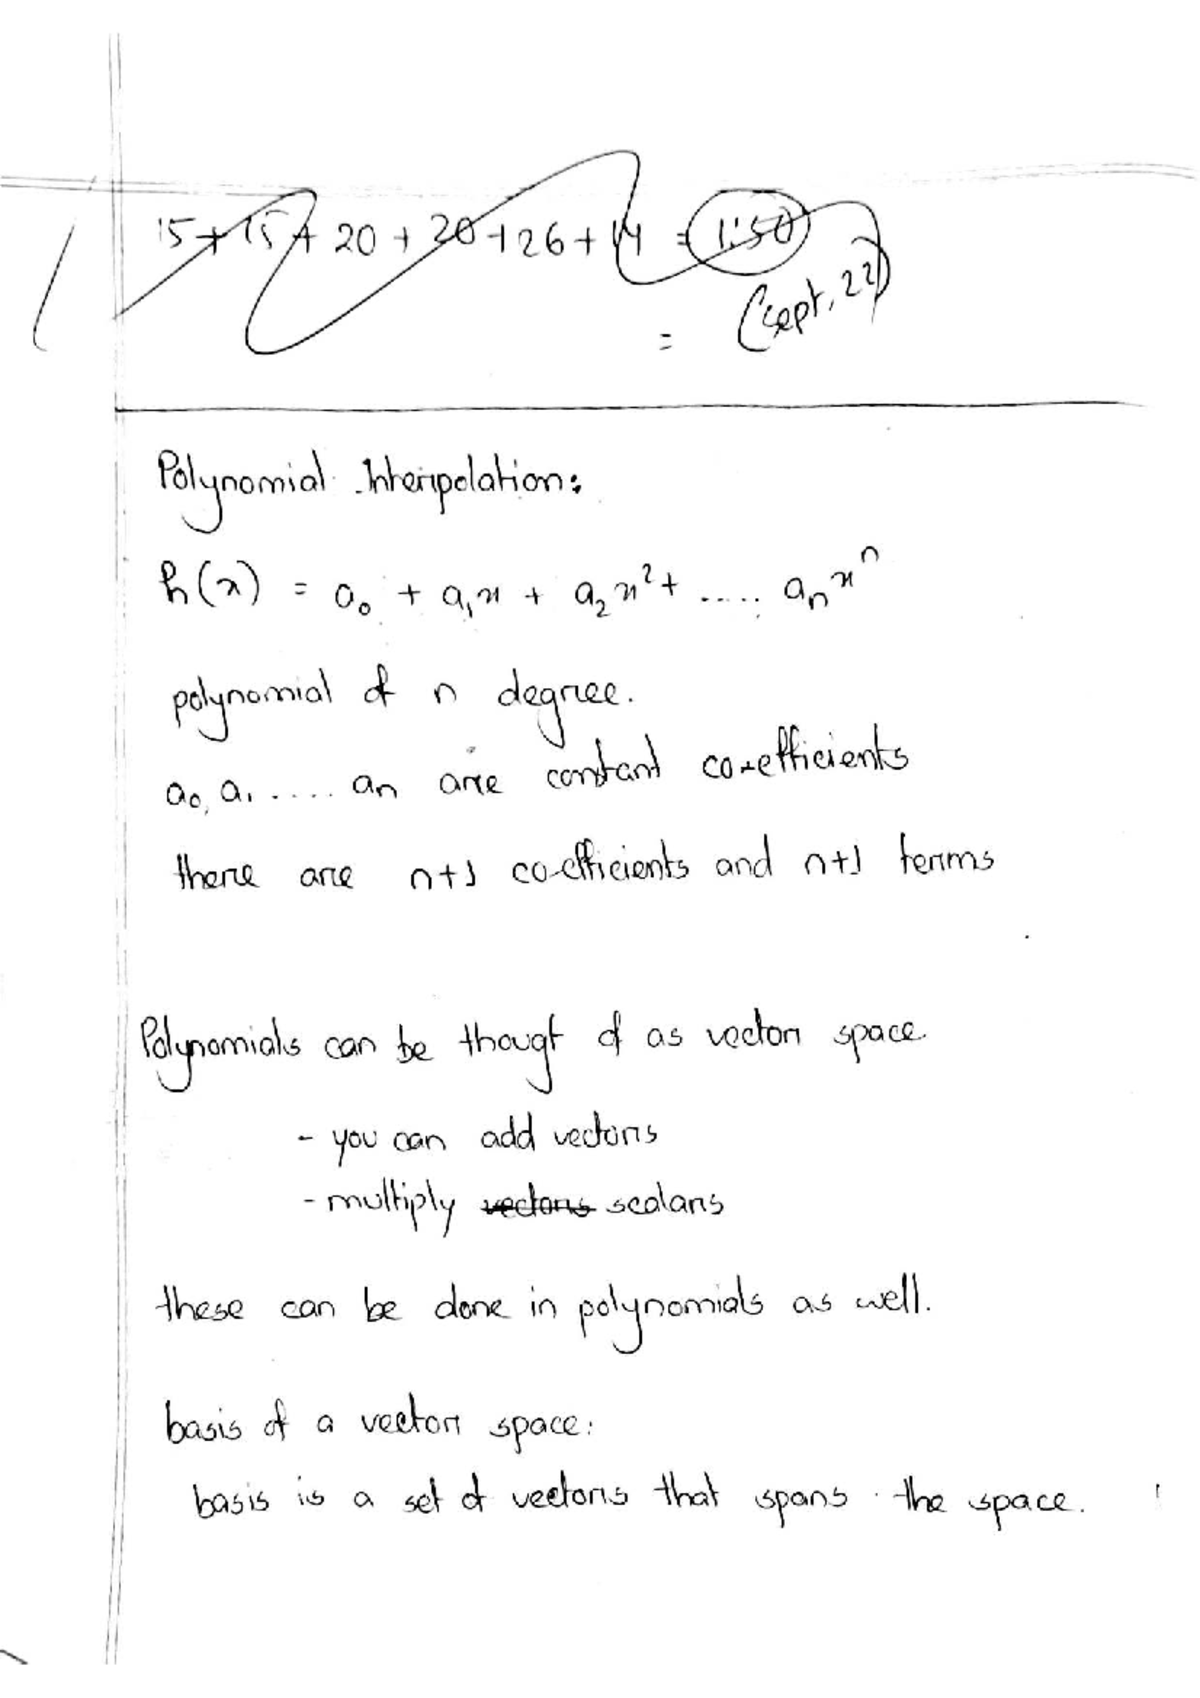 15 + 15 + 20 + 20 + 26 + 14 = 1:50
= (sept, 22)
Polynomial Interpolation:
h(x) = a₀ + a₁x + a₂x² + ..... aₙxⁿ
polynomial of n degree.
a₀, a₁ ..... an are constant co-efficients
there are n+1 co-efficients and n+1 terms
Polynomials can be thougt of as vector space
- you can add vectors
- multiply vectors scalars
these can be done in polynomials as well.
basis of a vector space:
basis is a set of vectors that spans the space.